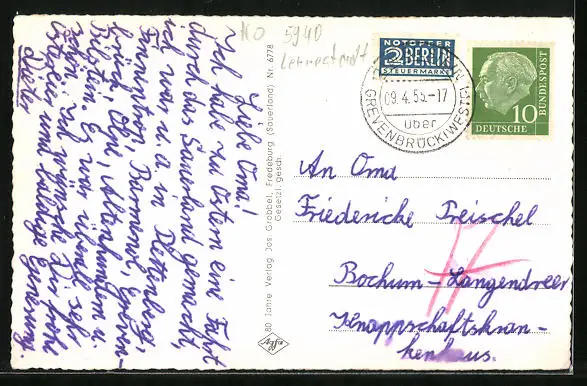 Liebe Oma!
Ich habe zu Ostern eine Fahrt
durch das Sauerland gemacht,
ich war u.a. in Plettenberg,
Finnentrop, Bamenohl, Greven-
brück, Elspe, Altenhundem u.
Bilstein. Es war überall sehr
schön. Ich wünsche Dir frohe
Ostern und baldige Genesung.
Dieter
80 Jahre Verlag Jos Grobbel, Fredeburg (Sauerland) Nr. 6778
Gesetzl. gesch.
NO 5940
NOTOPFER
2 BERLIN
STEUERMARKE
09.4.55.-17
über
GREVENBRÜCK(WESTF)
10
DEUTSCHE
BUNDESPOST
An Oma
Friedericke Treischel
Bochum-Langendreer
Knappschaftskran-
kenhaus.